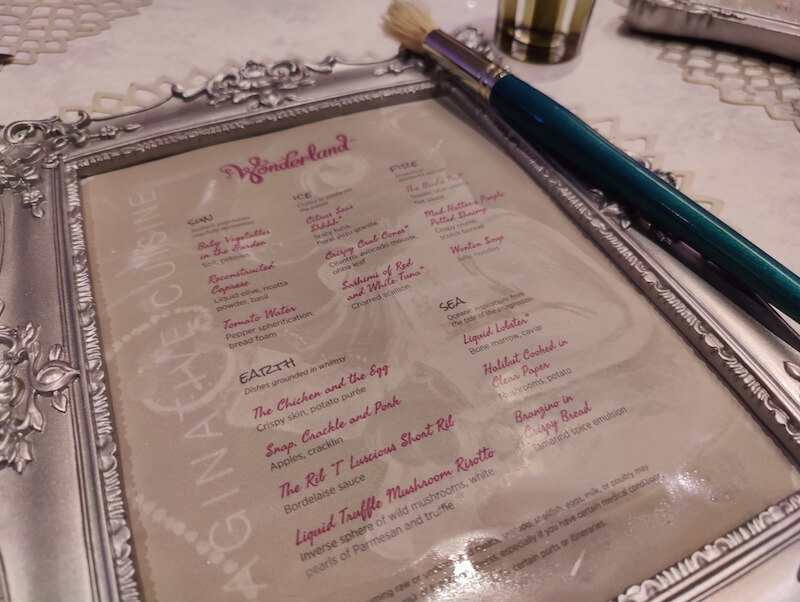 Wonderland
IMAGINATIVE CUISINE
SUN
ICE
Citrus Seas
Shhhh*
Spicy tuna,
floral yuzu granité
Crispy Crab Cones*
Cilantro, avocado mousse,
ohba leaf
Sashimi of Red
and White Tuna*
Charred scallion
FIRE
The Bird's Nest
Mad Hatters Purple
Potted Shrimp
Crispy crumb,
scotch bonnet
Wonton Soup
Jelly, noodles
Baby Vegetables
in the Garden
Soil, pebbles
Reconstructed
Caprese
Liquid olive, ricotta
powder, basil
Tomato Water
Pepper spherification,
bread foam
EARTH
Dishes grounded in whimsy
The Chicken and the Egg
Crispy skin, potato purée
Snap, Crackle and Pork
Apples, cracklin
The Rib "T" Luscious Short Rib
Bordelaise sauce
Liquid Truffle Mushroom Risotto
Inverse sphere of wild mushrooms, white
pearls of Parmesan and truffle
SEA
Oceanic inspirations from
the tide of the imagination
Liquid Lobster*
Bone marrow, caviar
Halibut Cooked in
Clear Paper
Mushrooms, potato
Branzino in
Crispy Bread
Tamarind spice emulsion
shellfish, eggs, milk, or poultry may
especially if you have certain medical conditions.
certain ports or itineraries.